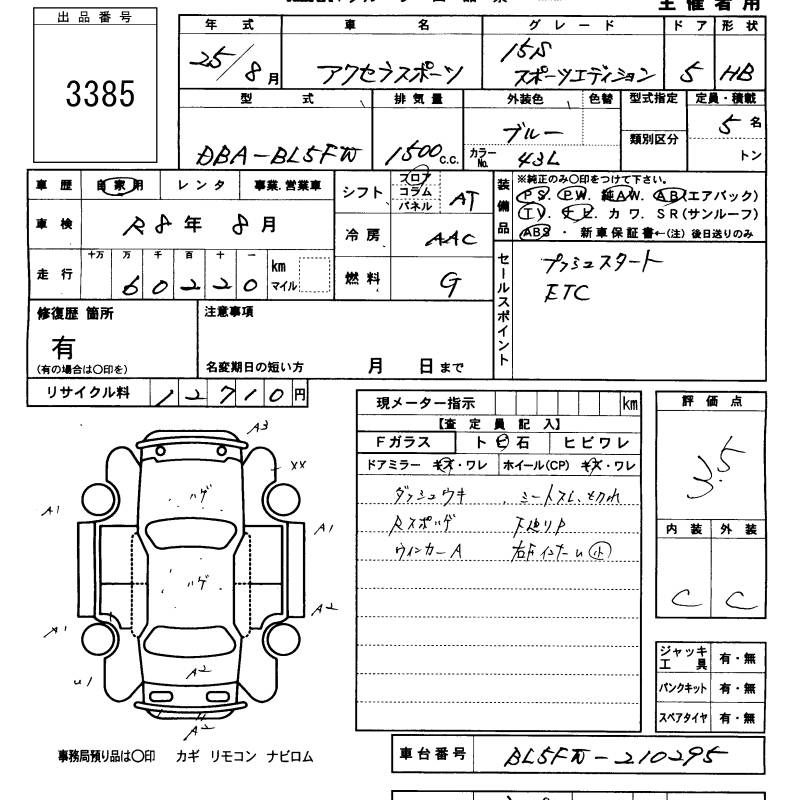 主催者用
出品番号
3385
年式 車名 グレード ドア 形状
25/8月 アクセラスポーツ 15S スポーツエディション 5 HB
型式 排気量 外装色 色替 型式指定 定員・積載
類別区分
DBA-BL5FW 1500c.c. ブルー カラーNo. 43L 5名
トン
車歴 自家用 レンタ 事業.営業車
車検 R8年 8月
走行 十万 万 千 百 十 一
60220 km マイル
シフト フロア コラム パネル AT
冷房 AAC
燃料 G
装備品 ※純正のみ〇印をつけて下さい。
PS. PW. 純AW. AB(エアバック)
TV. ナビ. カワ. SR(サンルーフ)
ABS・新車保証書←(注) 後日送りのみ
セールスポイント
プッシュスタート
ETC
修復歴 箇所
有
(有の場合は〇印を)
注意事項
名変期日の短い方 月 日まで
リサイクル料 12710円
現メーター指示 km
【査定員記入】
Fガラス トビ石 ヒビワレ
ドアミラー キズ・ワレ ホイール(CP) キズ・ワレ
ダッシュウキ シートスレ、
Rスポハゲ
ウィンカーA
評価点
3.5
内装 外装
C C
A3
XX
ハゲ
A1
A1
ハゲ
A2
A1
A2
U1
A2
ジャッキ工具 有・無
パンクキット 有・無
スペアタイヤ 有・無
事務局預り品は〇印 カギ リモコン ナビロム
車台番号 BL5FW-210295